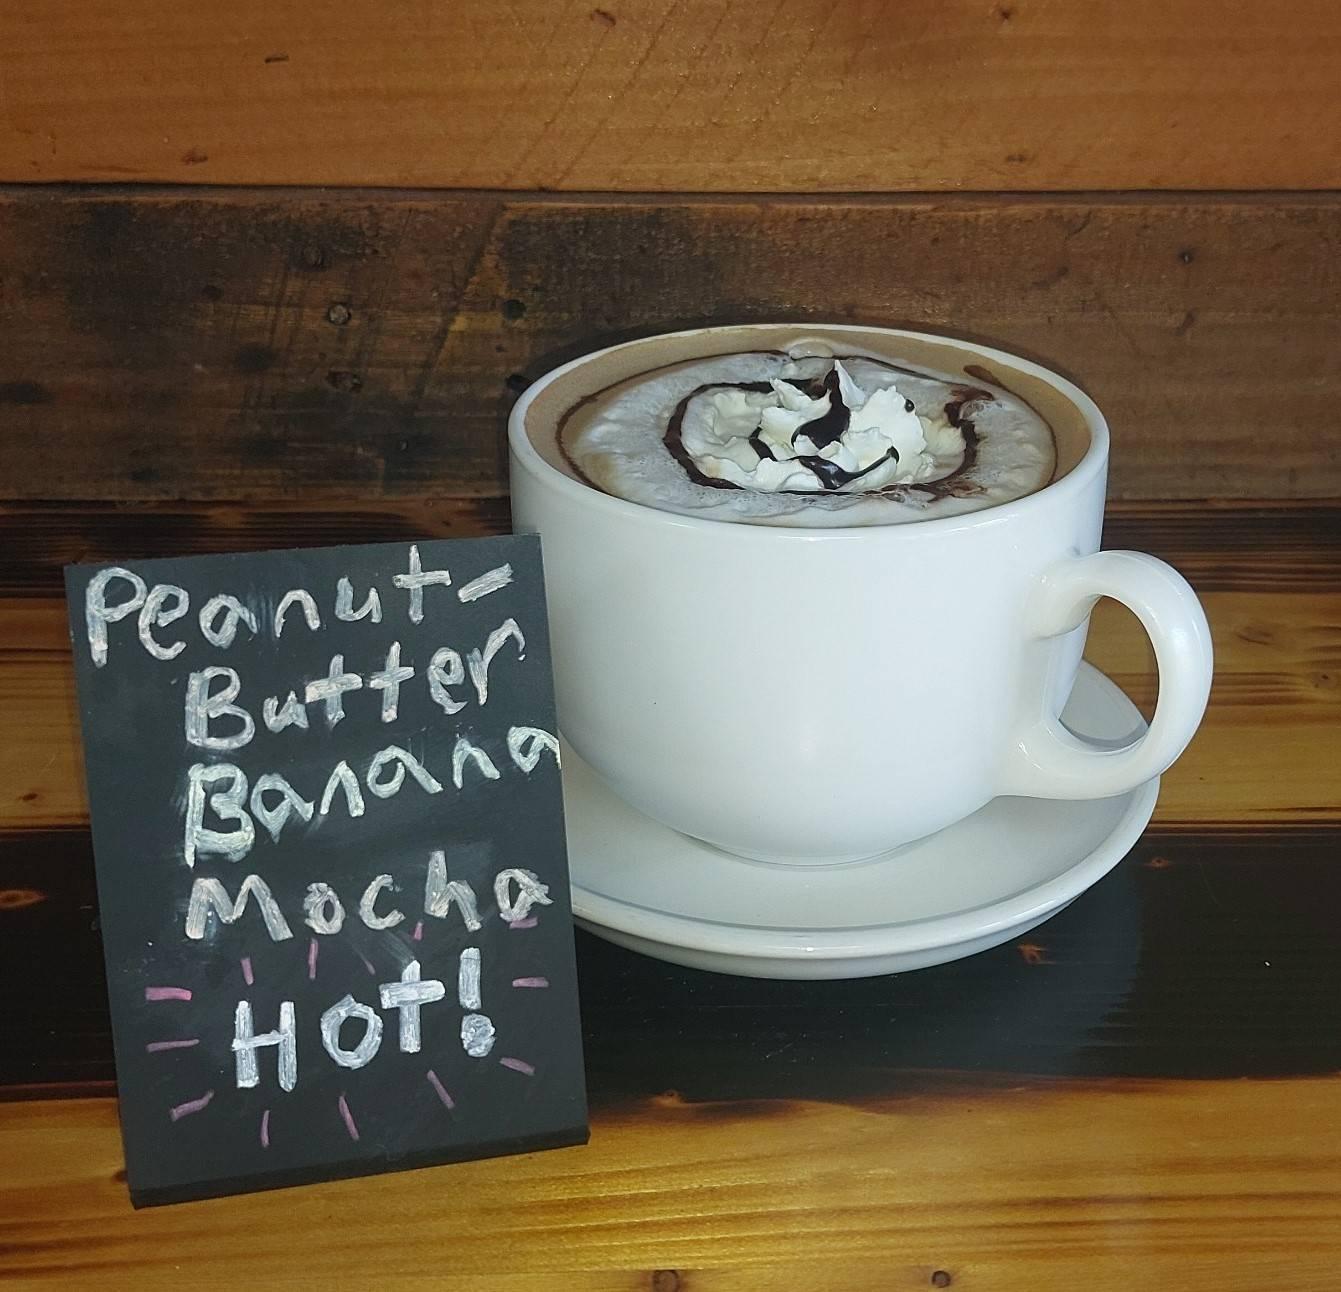 Peanut-
Butter
Banana
Mocha
HOT!